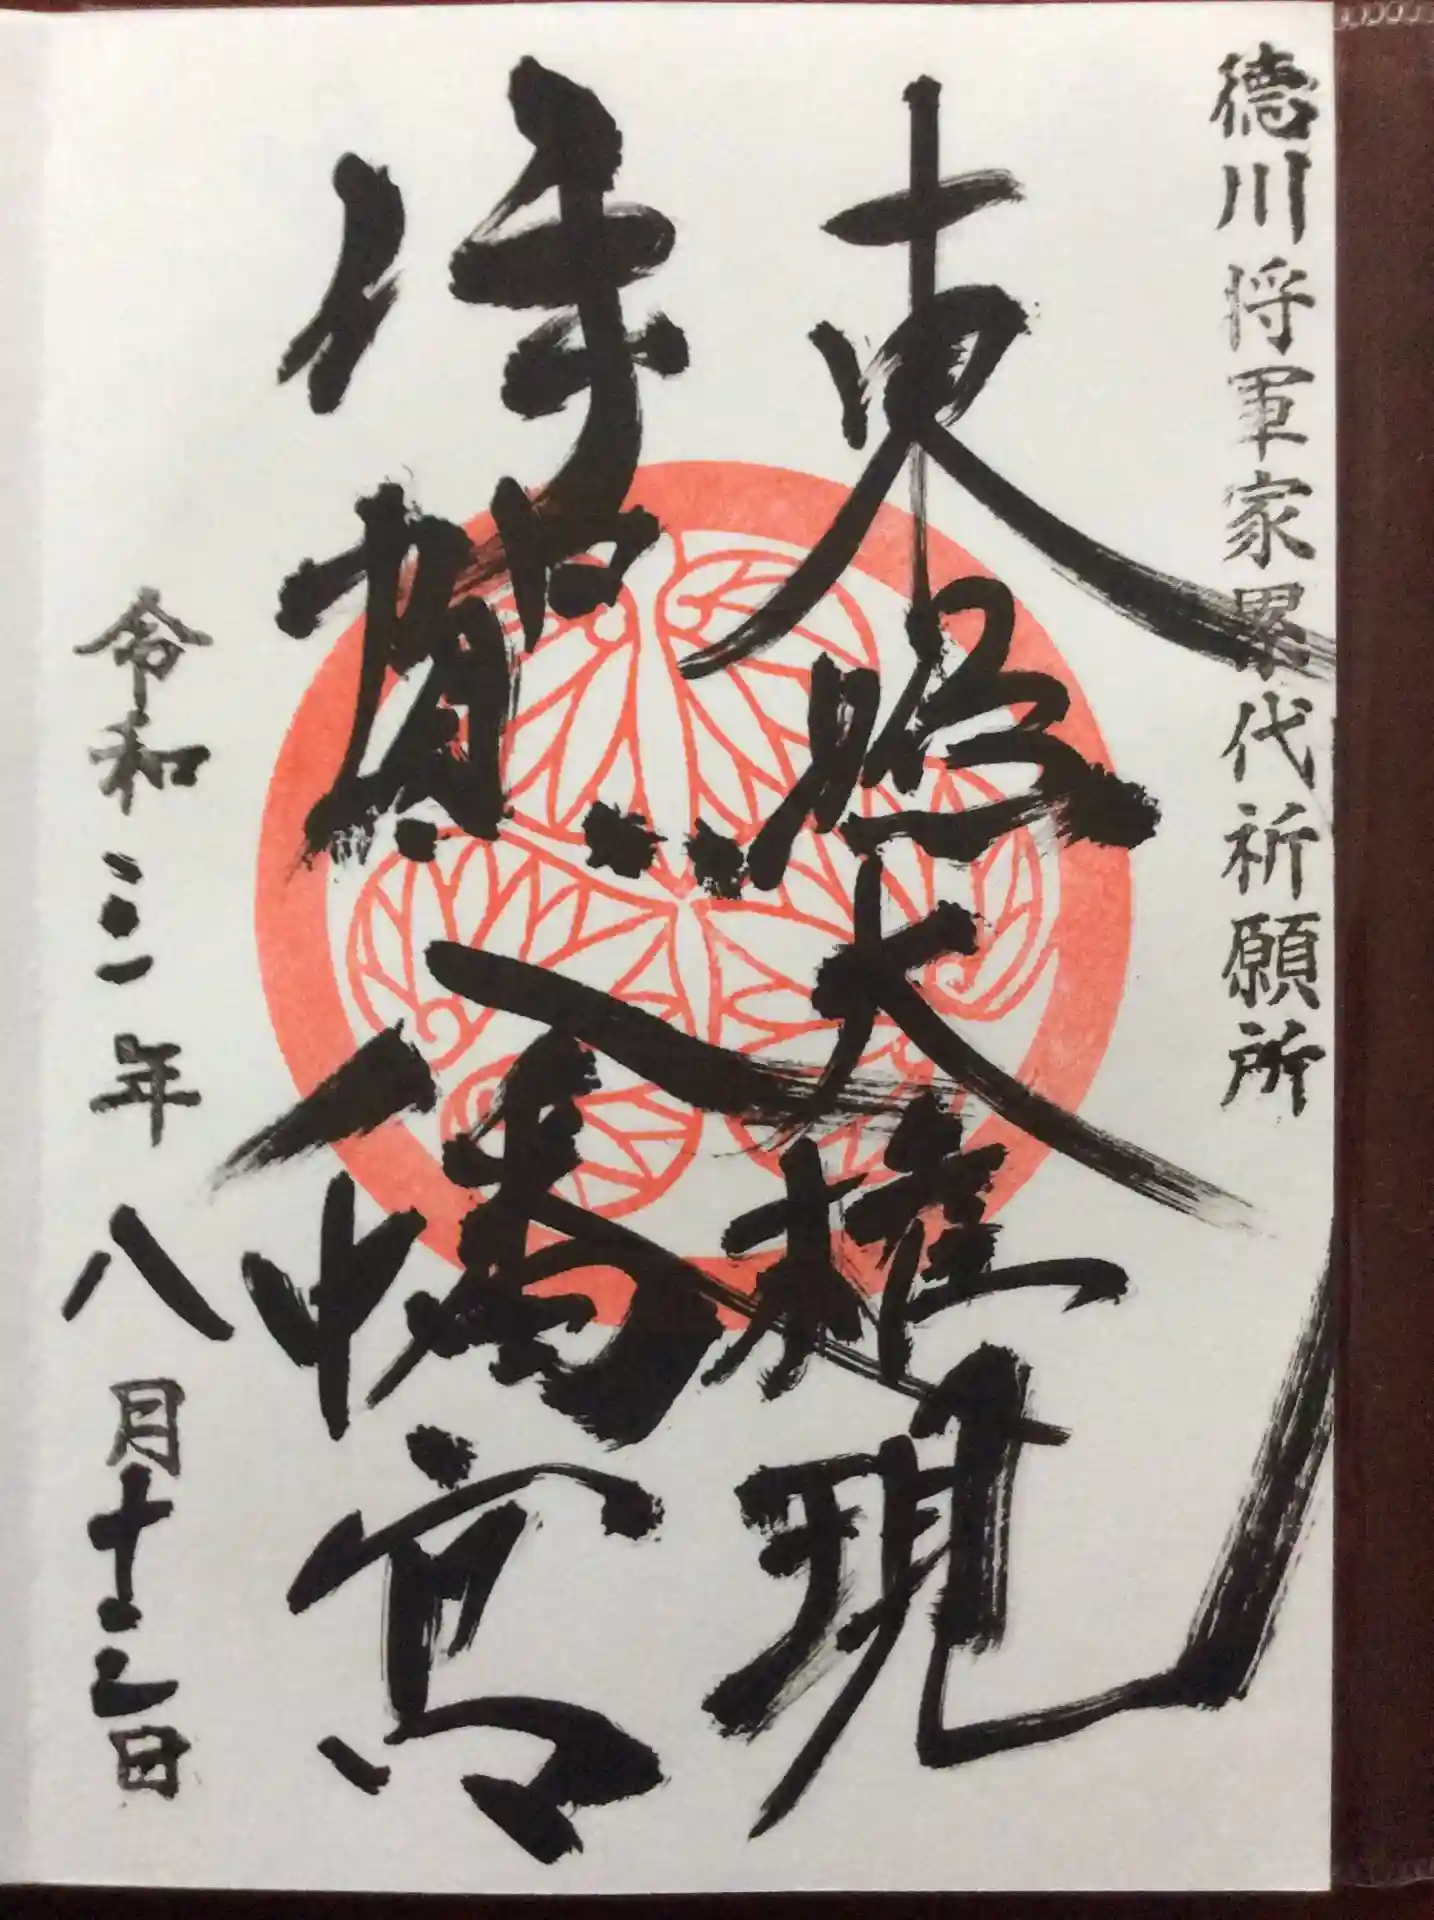 徳川将軍家累代祈願所
東照大権現
伊賀八幡宮
令和三年八月十日